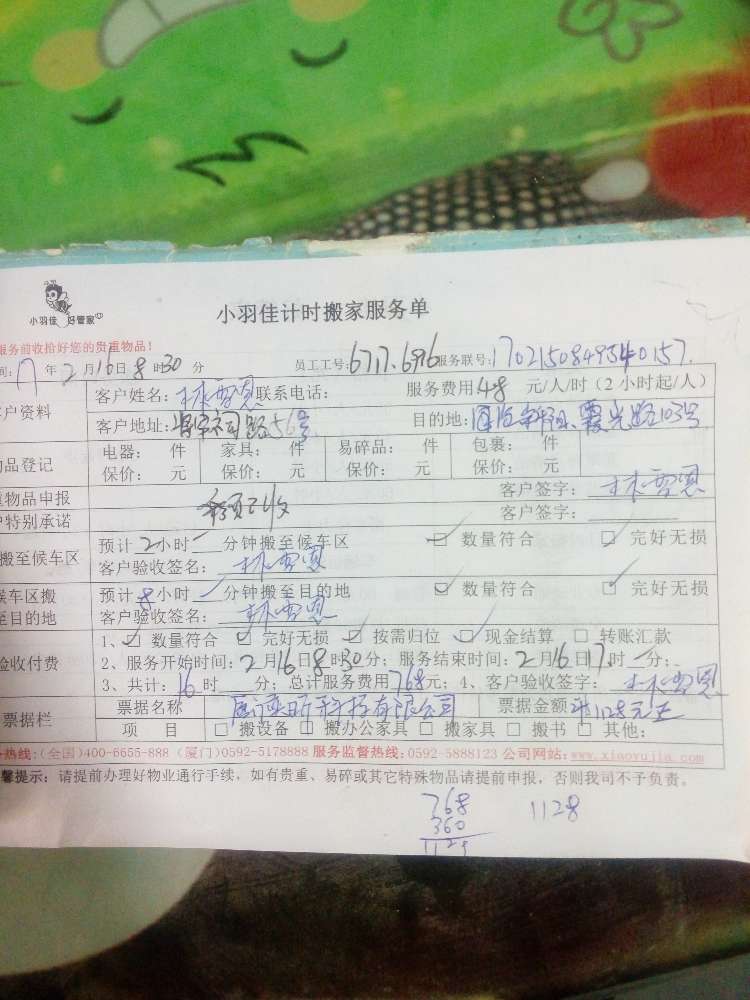 小羽佳 好管家
小羽佳计时搬家服务单
服务前收拾好您的贵重物品!
员工工号:6717.6916服务联号:170215084954 0157
间: 17年2月16日8时30分
户资料
客户姓名:林雪恩 联系电话: 服务费用48元/人/时(2小时起/人)
客户地址: 路56号 目的地: 霞光路103号
物品登记
电器: 件 家具: 件 易碎品: 件 包裹: 件
保价: 元 保价: 元 保价: 元 保价: 元
重物品申报 客户签字:林雪恩
户特别承诺 客户签字:
搬至候车区
预计2小时 分钟搬至候车区 ☑数量符合 ☑完好无损
客户验收签名:林雪恩
候车区搬至目的地
预计8小时 分钟搬至目的地 ☑数量符合 ☑完好无损
客户验收签名:林雪恩
验收付费
1、☑数量符合 ☑完好无损 ☑按需归位 ☑现金结算 □转账汇款
2、服务开始时间:2月16日8时30分;服务结束时间:2月16日17时 分;
3、共计:16时 分;总计服务费用768元;4、客户验收签字:林雪恩
票据栏
票据名称 厦门 科技有限公司 票据金额 1128元正
项 目 □搬设备 □搬办公家具 □搬家具 □搬书 □其他:
热线:(全国)400-6655-888 (厦门)0592-5178888 服务监督热线:0592-5888123 公司网站:www.xiaoyujia.com
馨提示:请提前办理好物业通行手续,如有贵重、易碎或其它特殊物品请提前申报,否则我司不予负责。
768 1128
360
112